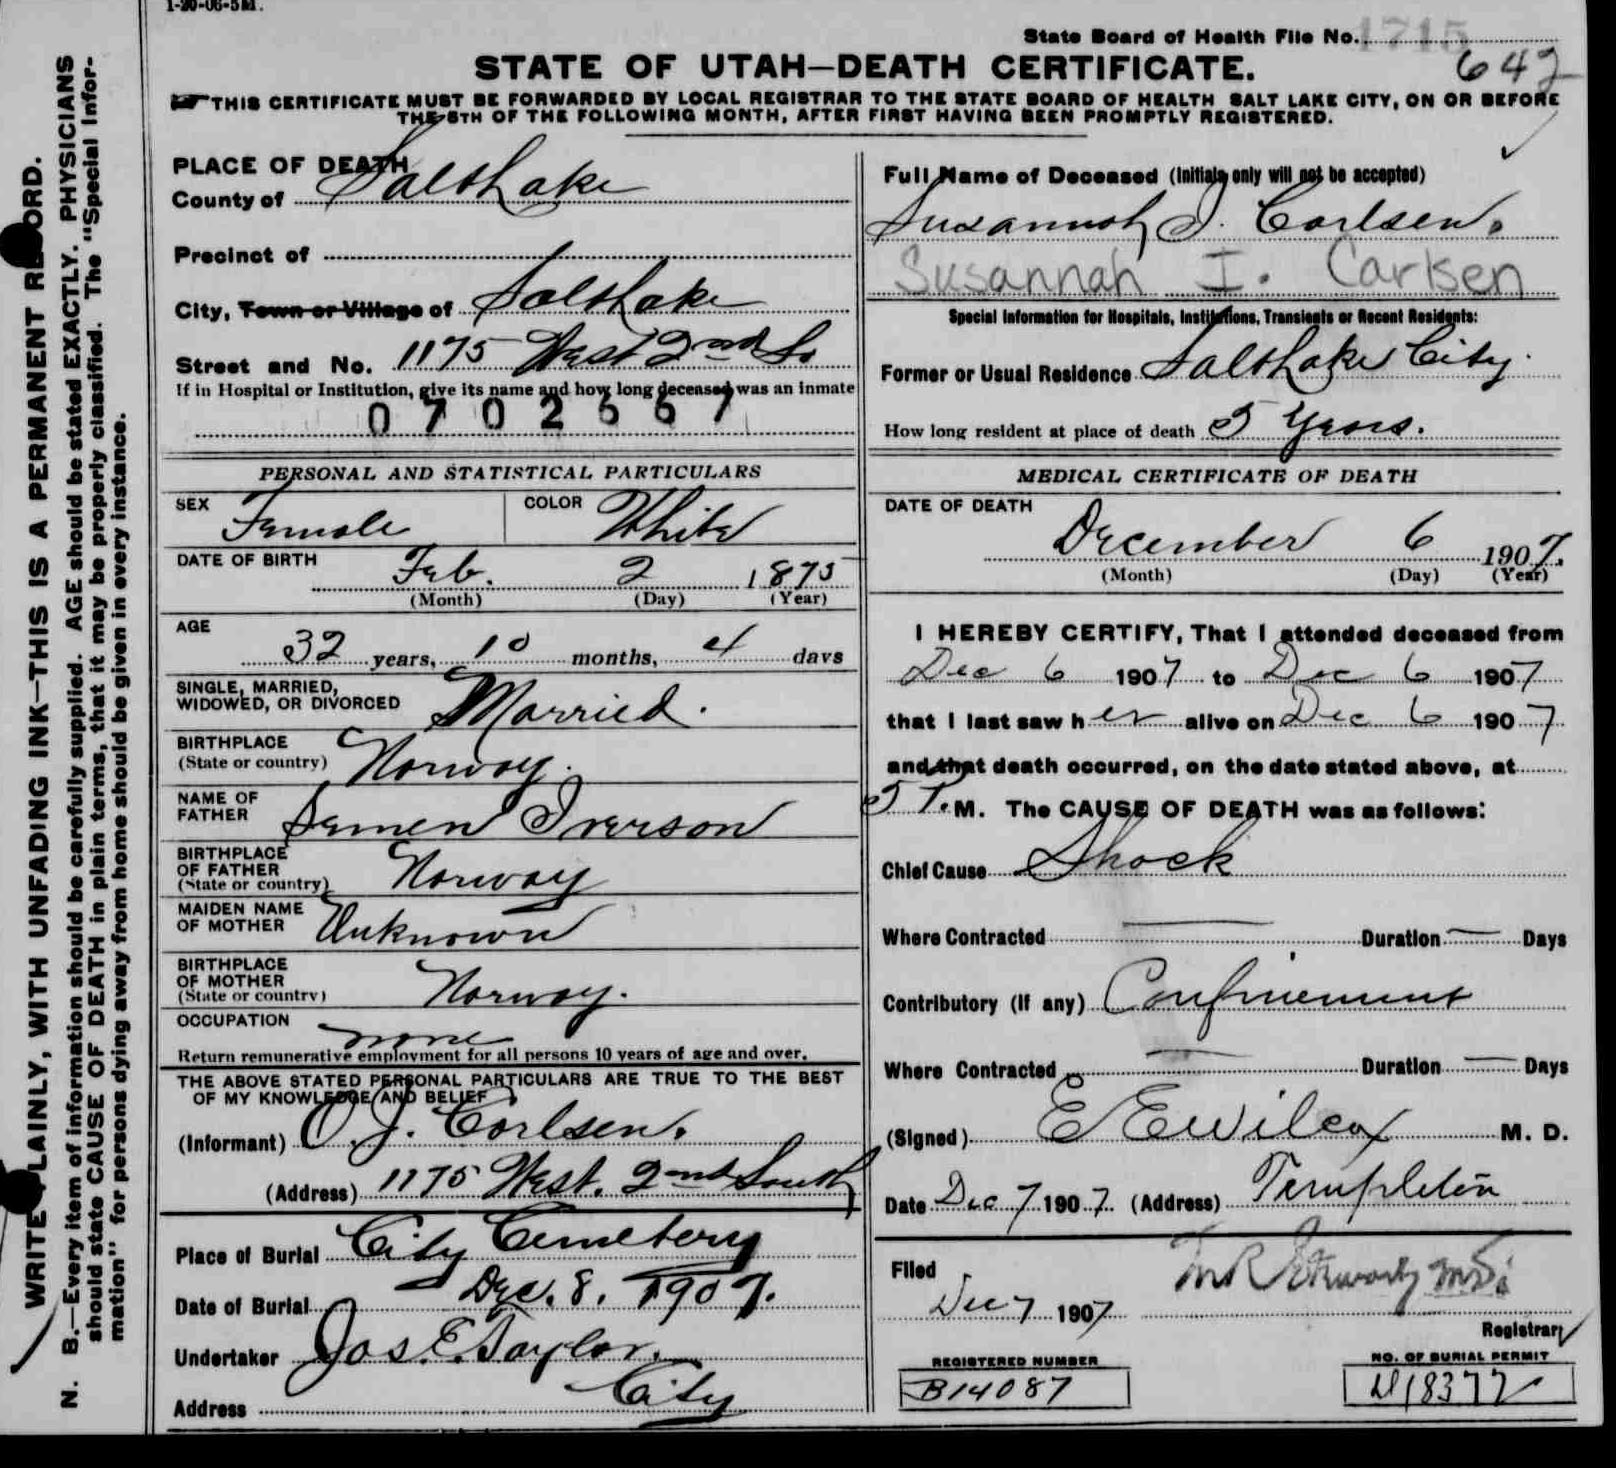 1-20-06-5M.
State Board of Health File No. 1715
642
STATE OF UTAH—DEATH CERTIFICATE.
THIS CERTIFICATE MUST BE FORWARDED BY LOCAL REGISTRAR TO THE STATE BOARD OF HEALTH SALT LAKE CITY, ON OR BEFORE
THE 5TH OF THE FOLLOWING MONTH, AFTER FIRST HAVING BEEN PROMPTLY REGISTERED.
WRITE PLAINLY, WITH UNFADING INK—THIS IS A PERMANENT RECORD.
N. B.—Every item of information should be carefully supplied. AGE should be stated EXACTLY. PHYSICIANS
should state CAUSE OF DEATH in plain terms, that it may be properly classified. The "Special Infor-
mation" for persons dying away from home should be given in every instance.
PLACE OF DEATH
County of Salt Lake
Precinct of
City, Town or Village of Salt Lake
Street and No. 1175 West 2nd So
If in Hospital or Institution, give its name and how long deceased was an inmate
0702567
PERSONAL AND STATISTICAL PARTICULARS
SEX Female COLOR White
DATE OF BIRTH
Feb. 2 1875
(Month) (Day) (Year)
AGE
32 years, 10 months, 4 days
SINGLE, MARRIED,
WIDOWED, OR DIVORCED Married.
BIRTHPLACE
(State or country) Norway.
NAME OF
FATHER Semen Iverson
BIRTHPLACE
OF FATHER
(State or country) Norway
MAIDEN NAME
OF MOTHER Unknown
BIRTHPLACE
OF MOTHER
(State or country) Norway.
OCCUPATION none
Return remunerative employment for all persons 10 years of age and over.
THE ABOVE STATED PERSONAL PARTICULARS ARE TRUE TO THE BEST
OF MY KNOWLEDGE AND BELIEF
(Informant) O. J. Carlsen.
(Address) 1175 West. 2nd South
Place of Burial City Cemetery
Date of Burial Dec. 8. 1907.
Undertaker Jos. E. Taylor.
Address City
Full Name of Deceased (Initials only will not be accepted)
Susannah I. Carlsen.
Susannah I. Carlsen
Special Information for Hospitals, Institutions, Transients or Recent Residents:
Former or Usual Residence Salt Lake City.
How long resident at place of death 5 Years.
MEDICAL CERTIFICATE OF DEATH
DATE OF DEATH
December 6 1907.
(Month) (Day) (Year)
I HEREBY CERTIFY, That I attended deceased from
Dec 6 1907 to Dec 6 1907
that I last saw her alive on Dec 6 1907
and that death occurred, on the date stated above, at
5 P. M. The CAUSE OF DEATH was as follows:
Chief Cause Shock
Where Contracted — Duration — Days
Contributory (If any) Confinement
Where Contracted — Duration — Days
(Signed) E E Wilcox M. D.
Date Dec 7 1907. (Address) Templeton
Filed
Dec 7 1907
Registrar
REGISTERED NUMBER
B14087
NO. OF BURIAL PERMIT
18377